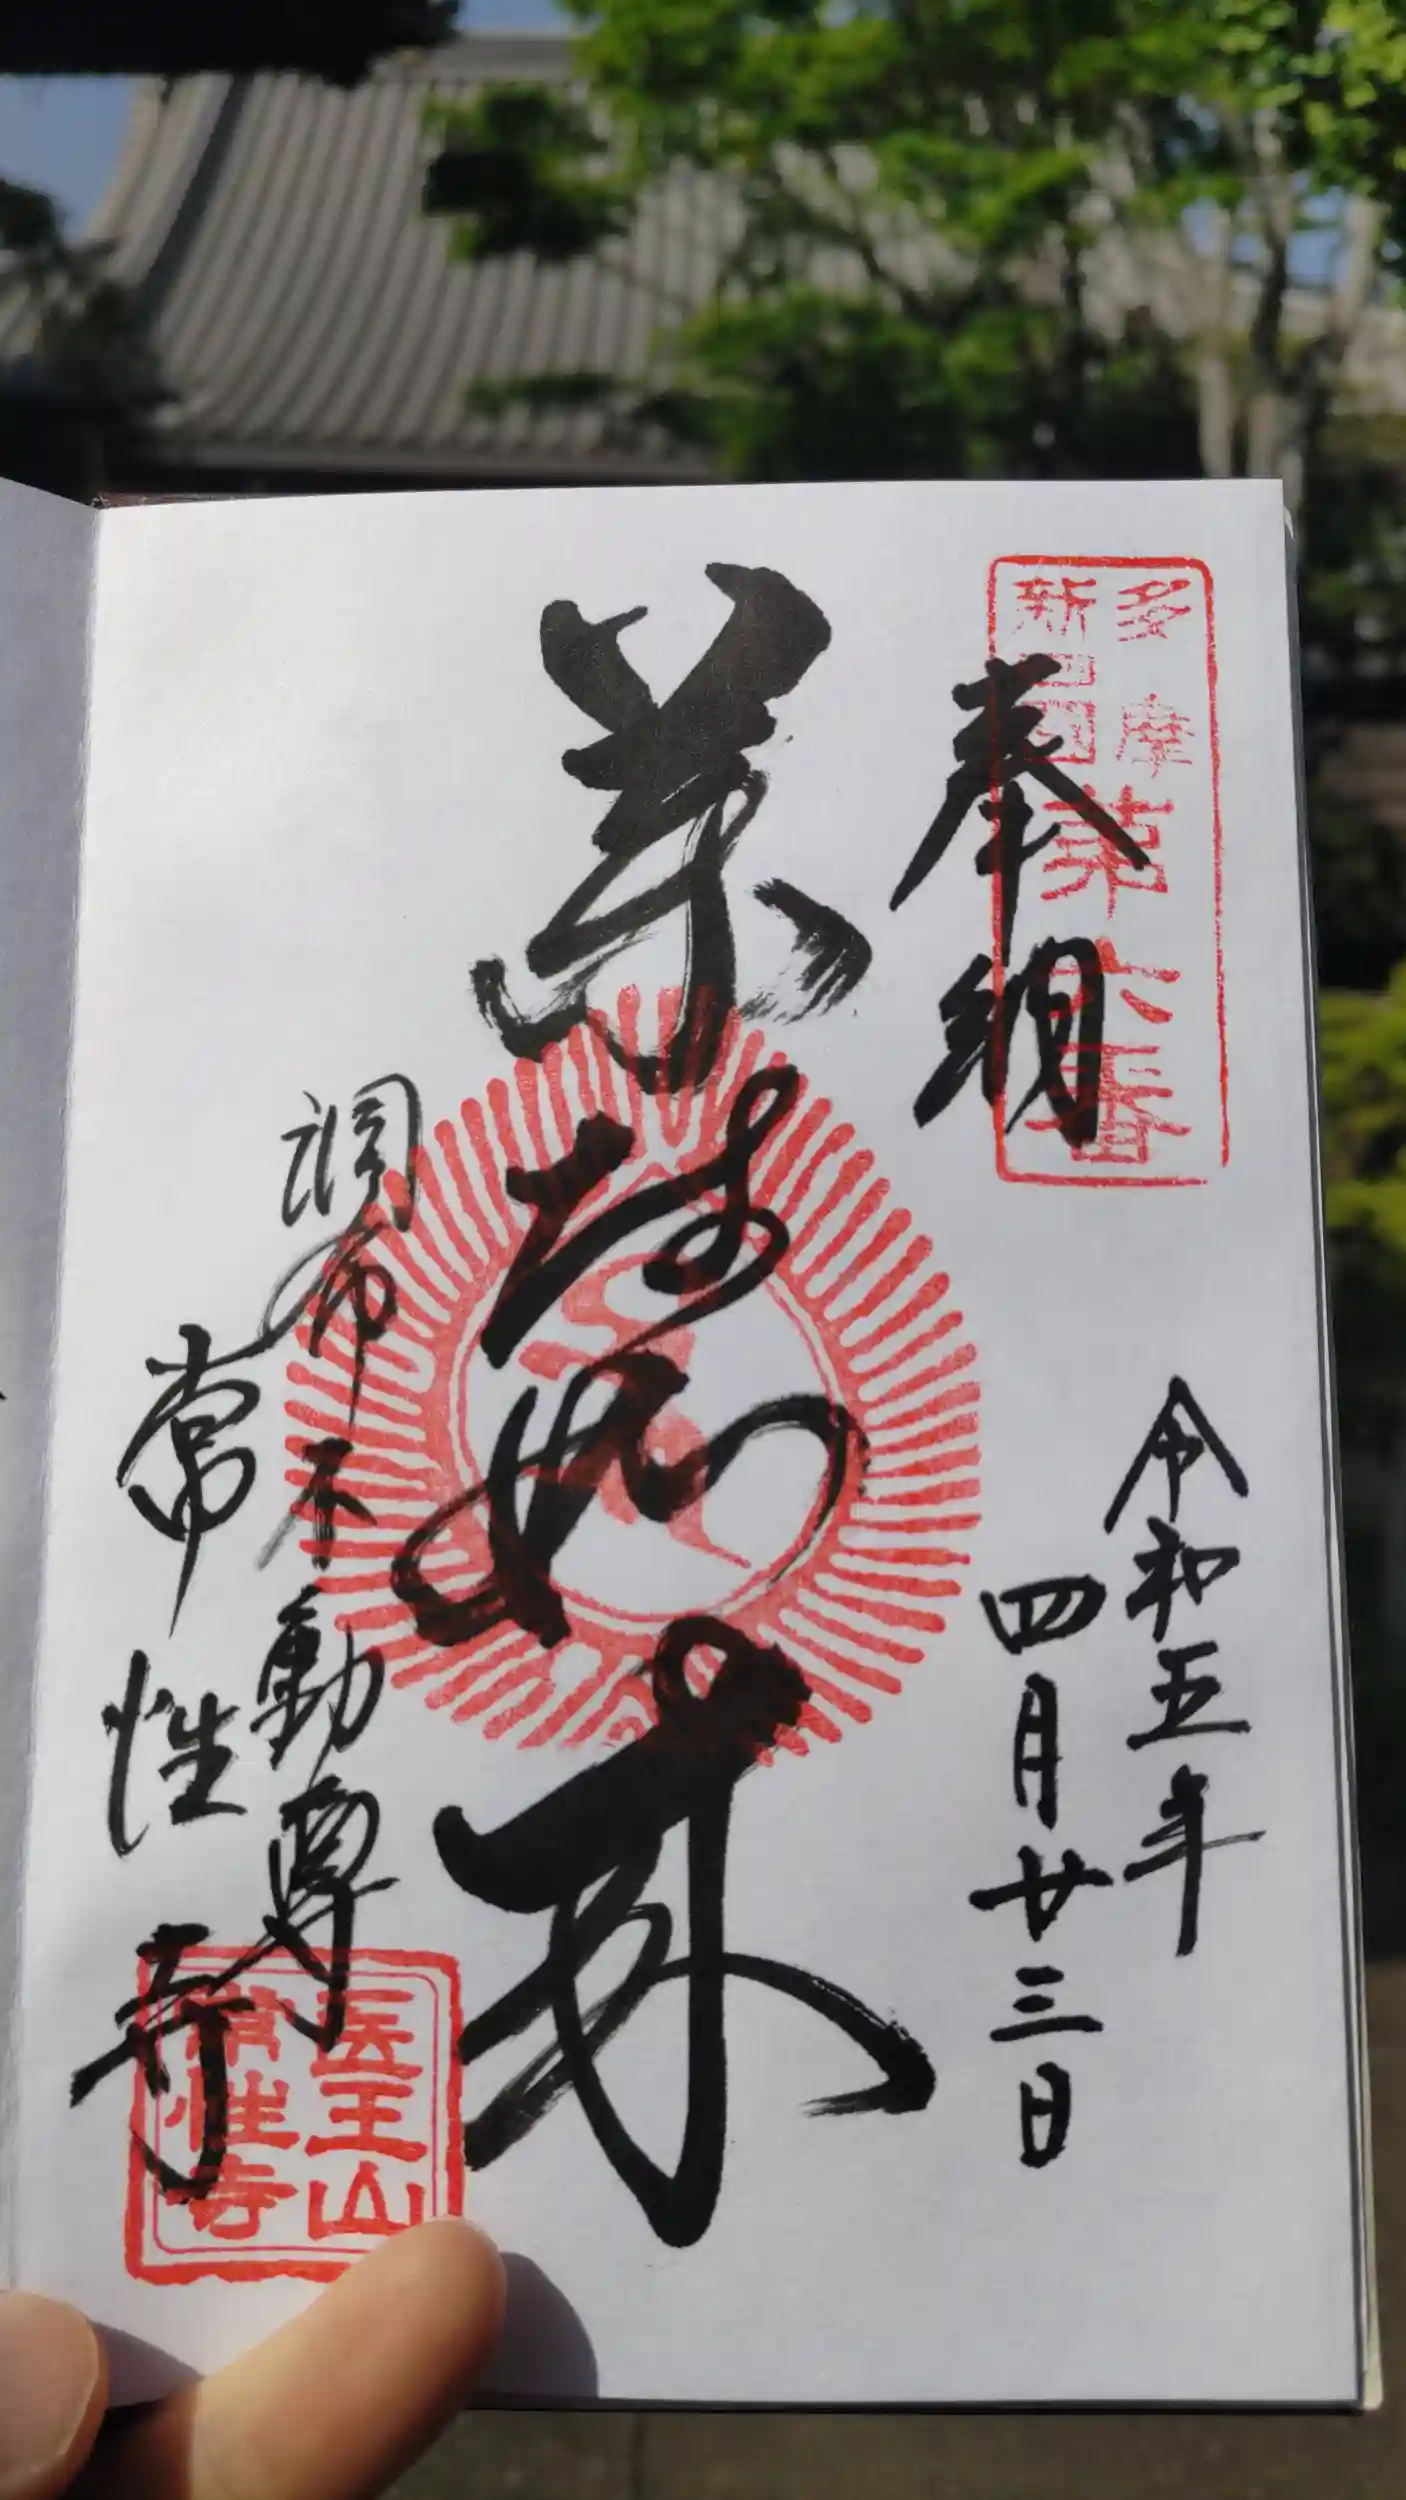 多摩
新四国
第六番
奉納
令和五年
四月廿三日
薬師如来
調布不動尊
常性寺
医王山
常性寺